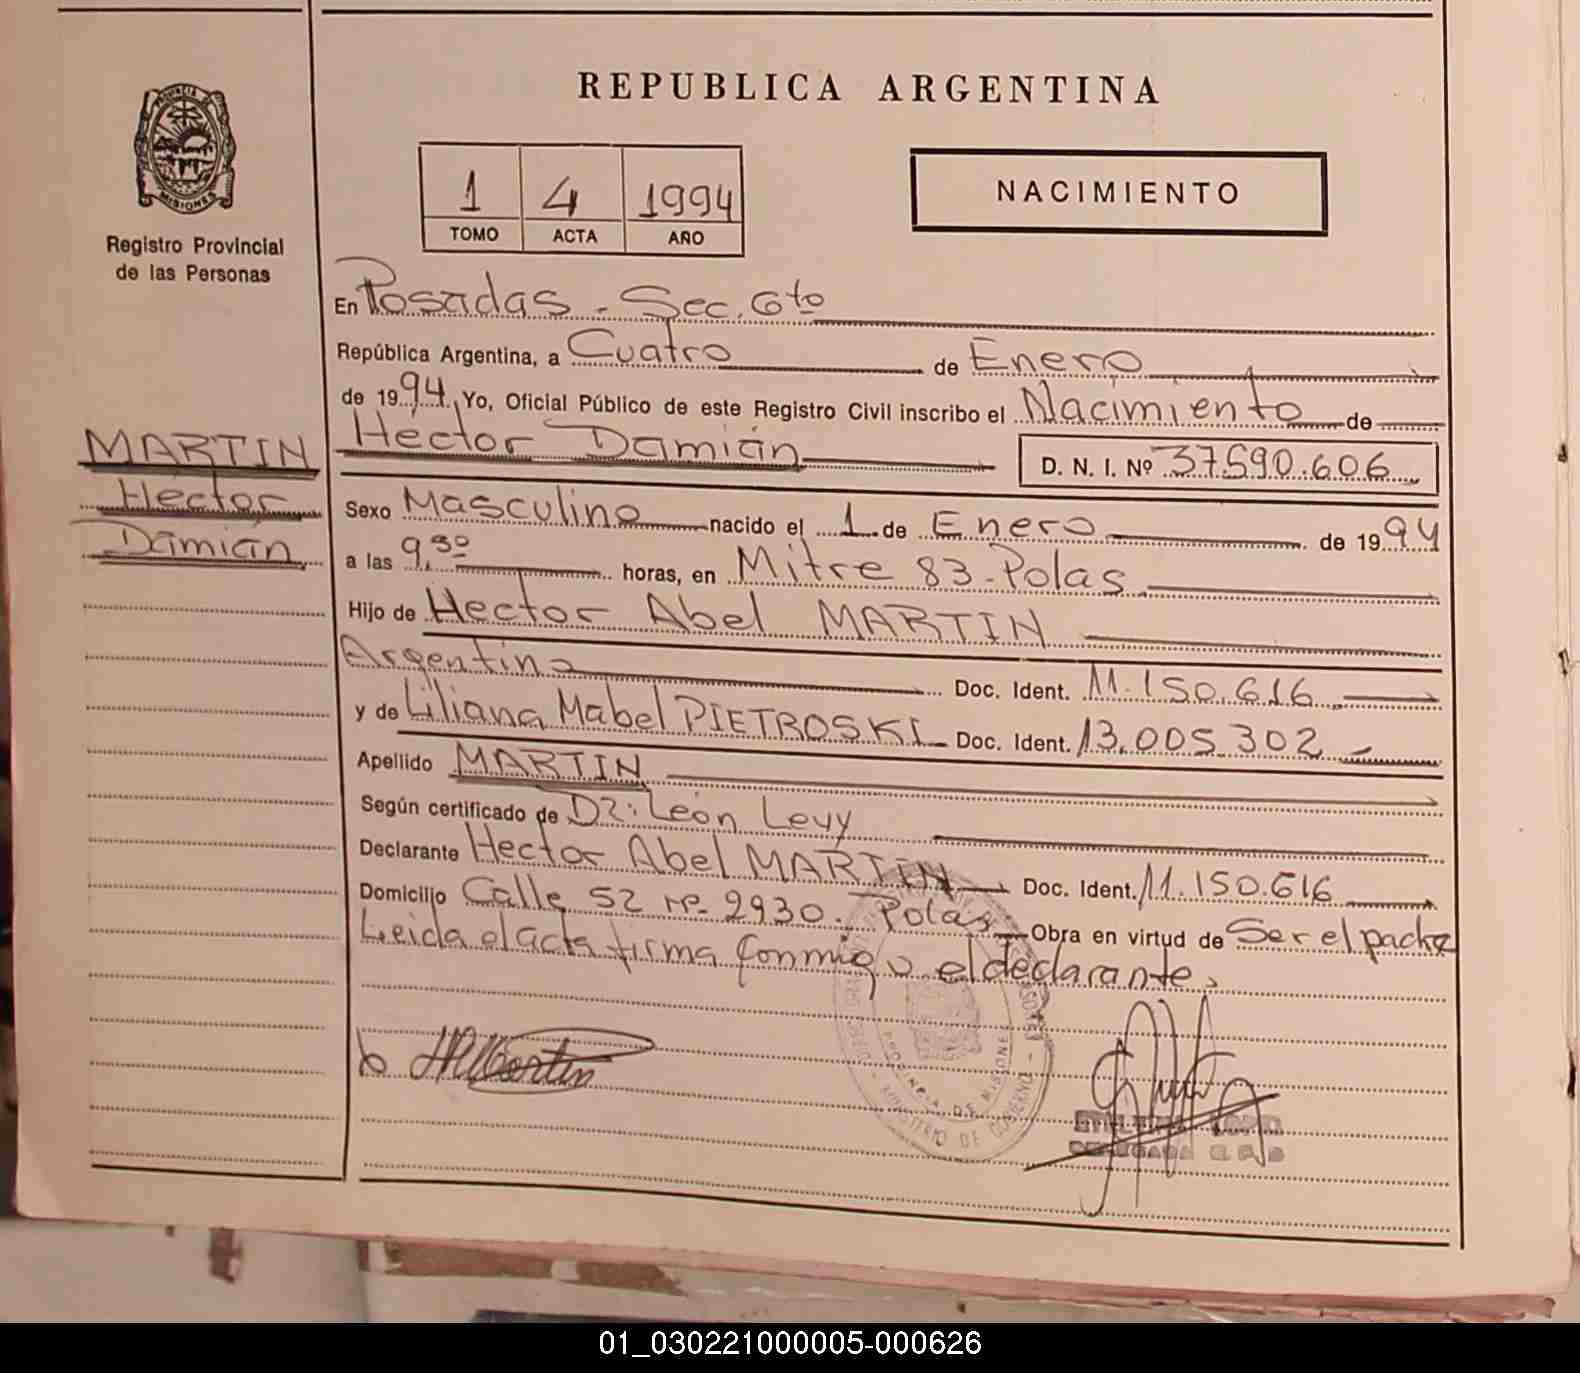 REPUBLICA ARGENTINA
PROVINCIA DE
MISIONES
Registro Provincial
de las Personas
1 4 1994
TOMO ACTA AÑO
NACIMIENTO
MARTIN
Héctor
Damián
En Posadas - Sec. 6to
República Argentina, a Cuatro de Enero
de 1994. Yo, Oficial Público de este Registro Civil inscribo el Nacimiento de
Héctor Damián D. N. I. Nº 37.590.606
Sexo Masculino nacido el 1 de Enero de 1994
a las 9,30 horas, en Mitre 83 - Pdas.
Hijo de Hector Abel MARTIN
Argentino Doc. Ident. 11.150.616
y de Liliana Mabel PIETROSKI Doc. Ident. 13.005.302
Apellido MARTIN
Según certificado de Dr: León Levy
Declarante Hector Abel MARTIN Doc. Ident. 11.150.616
Domicilio Calle 52 nº 2930. Pdas Obra en virtud de Ser el padre
Leida el acta firma conmigo el declarante.
PROVINCIA DE MISIONES
MINISTERIO DE GOBIERNO
01_030221000005-000626